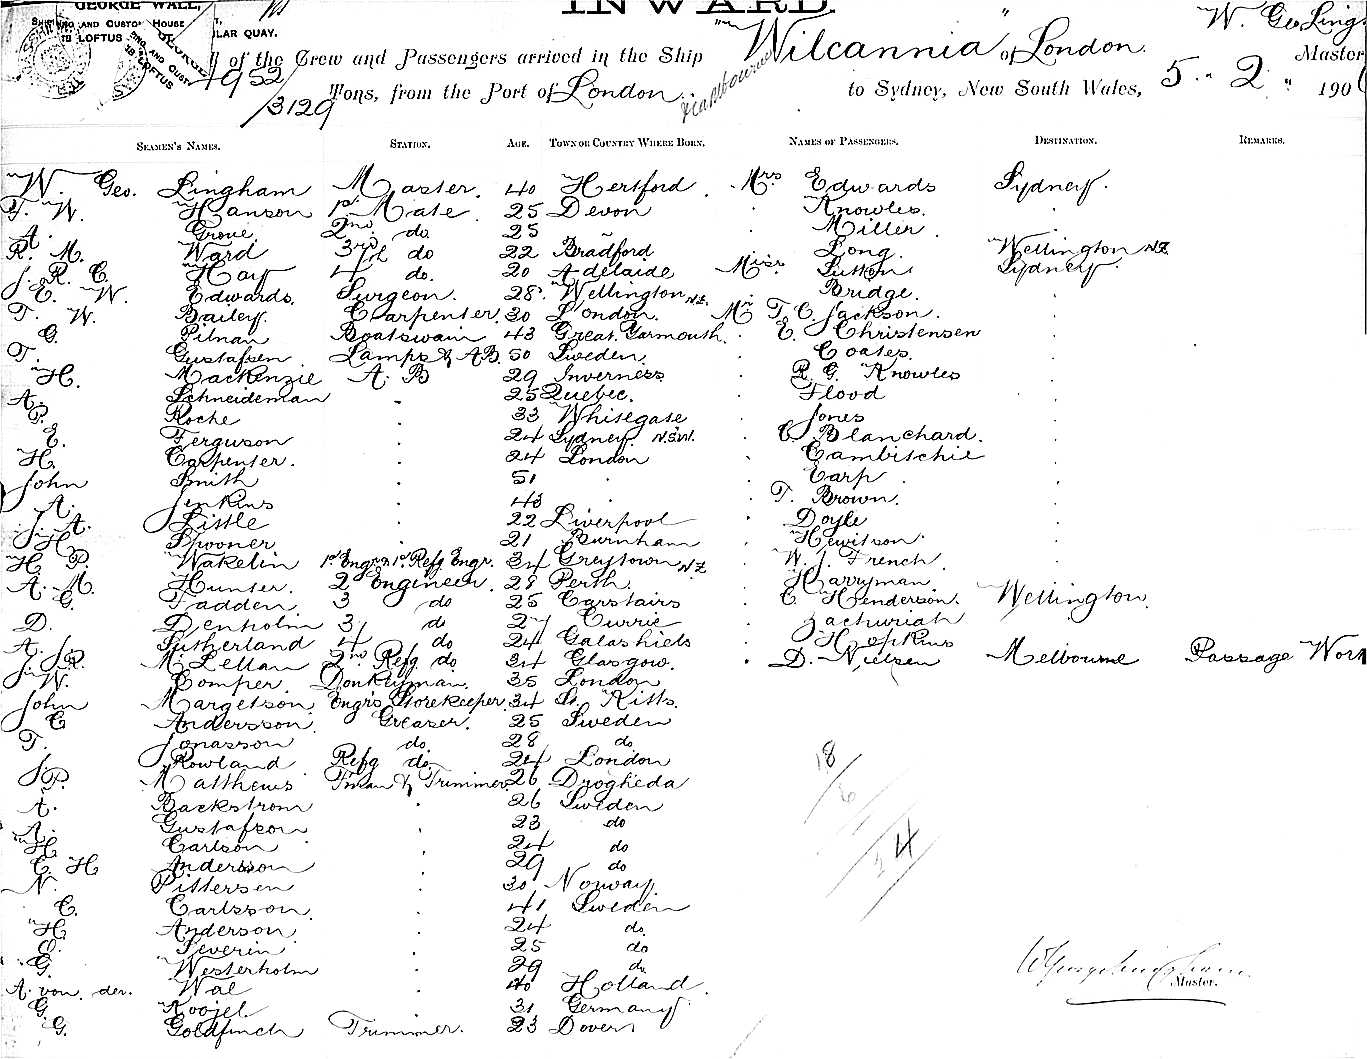 INWARD.
GEORGE WALL,
SHIPPING AND CUSTOM HOUSE
LOFTUS ST,
CIRCULAR QUAY.
of the Crew and Passengers arrived in the Ship "Wilcannia" of London. W. Geo. Ling
Master
1952/3129 Tons, from the Port of London to Sydney, New South Wales, 5 " 2 " 190
Melbourne
SEAMEN'S NAMES. STATION. AGE. TOWN OR COUNTRY WHERE BORN. NAMES OF PASSENGERS. DESTINATION. REMARKS.
W. Geo. Lingham Master. 40 Hertford. Mrs Edwards Sydney.
T. W. Hanson 1st Mate. 25 Devon . Knowles. .
A. Grove 2nd do. 25 . . Miller .
R. M. Ward 3rd do 22 Bradford . Long. Wellington NZ
J. R. C. Hay 4th do. 20 Adelaide Miss Sutton Sydney.
E. W. Edwards. Surgeon. 28 Wellington NZ. . Bridge. .
T. W. Bailey. Carpenter. 30 London. Mr T. C. Jackson. .
G. Pitman Boatswain 43 Great Yarmouth. . E. Christensen .
T. Gustafsen Lamps & AB. 50 Sweden. . Coates. .
H. Mackenzie A. B 29 Inverness . R. G. Knowles .
A. Schneideman . 25 Quebec. . Flood .
P. Roche . 33 Whitegate . Jones .
E. Ferguson . 24 Sydney. N.S.W. . C Blanchard. .
H. Carpenter. . 24 London . Cambitchie .
John Smith . 51 . . Earp .
A. Jenkins . 43 . . T. Brown. .
J. A. Little . 22 Liverpool . Doyle .
H. Spooner . 21 Burnham . Hewitson. .
H. P. Wakelin 1st Engr & 1st Refg Engr. 34 Greytown NZ . W. J. French. .
A. M. Hunter. 2 Engineer. 28 Perth. . Harryman. .
G. Fadden 3 do 25 Carstairs . C. Henderson. Wellington.
D. Denholm 3 do 27 Currie . Zachariah .
A. Sutherland 4 do 24 Galashiels . Hopkins .
J. R. McLellan 2nd Refg do. 34 Glasgow. . D. Nielsen Melbourne Passage Work
W. Comper. Donkeyman. 35 London
John Margetson Engrs Storekeeper. 34 St. Kitts.
C Andersson. Greaser. 25 Sweden
T. Jonasson do. 28 do.
J. Rowland Refg do. 24 London
P. Matthews F'man & Trimmer 26 Drogheda
A. Backstrom . 26 Sweden
A. Gustafson . 23 do
H. Carlson . 24 do
C. H Andersson . 29 do
N. Pittersen . 30 Norway.
C. Carlsson. . 41 Sweden
H. Anderson . 24 do.
E. Severin . 25 do
G. Westerholm . 29 do.
A. von. der. Wal . 40 Holland.
G. Koojel. . 31 Germany
G. Goldfinch Trimmer. 23 Dover
18/6
24
W George Lingham
Master.